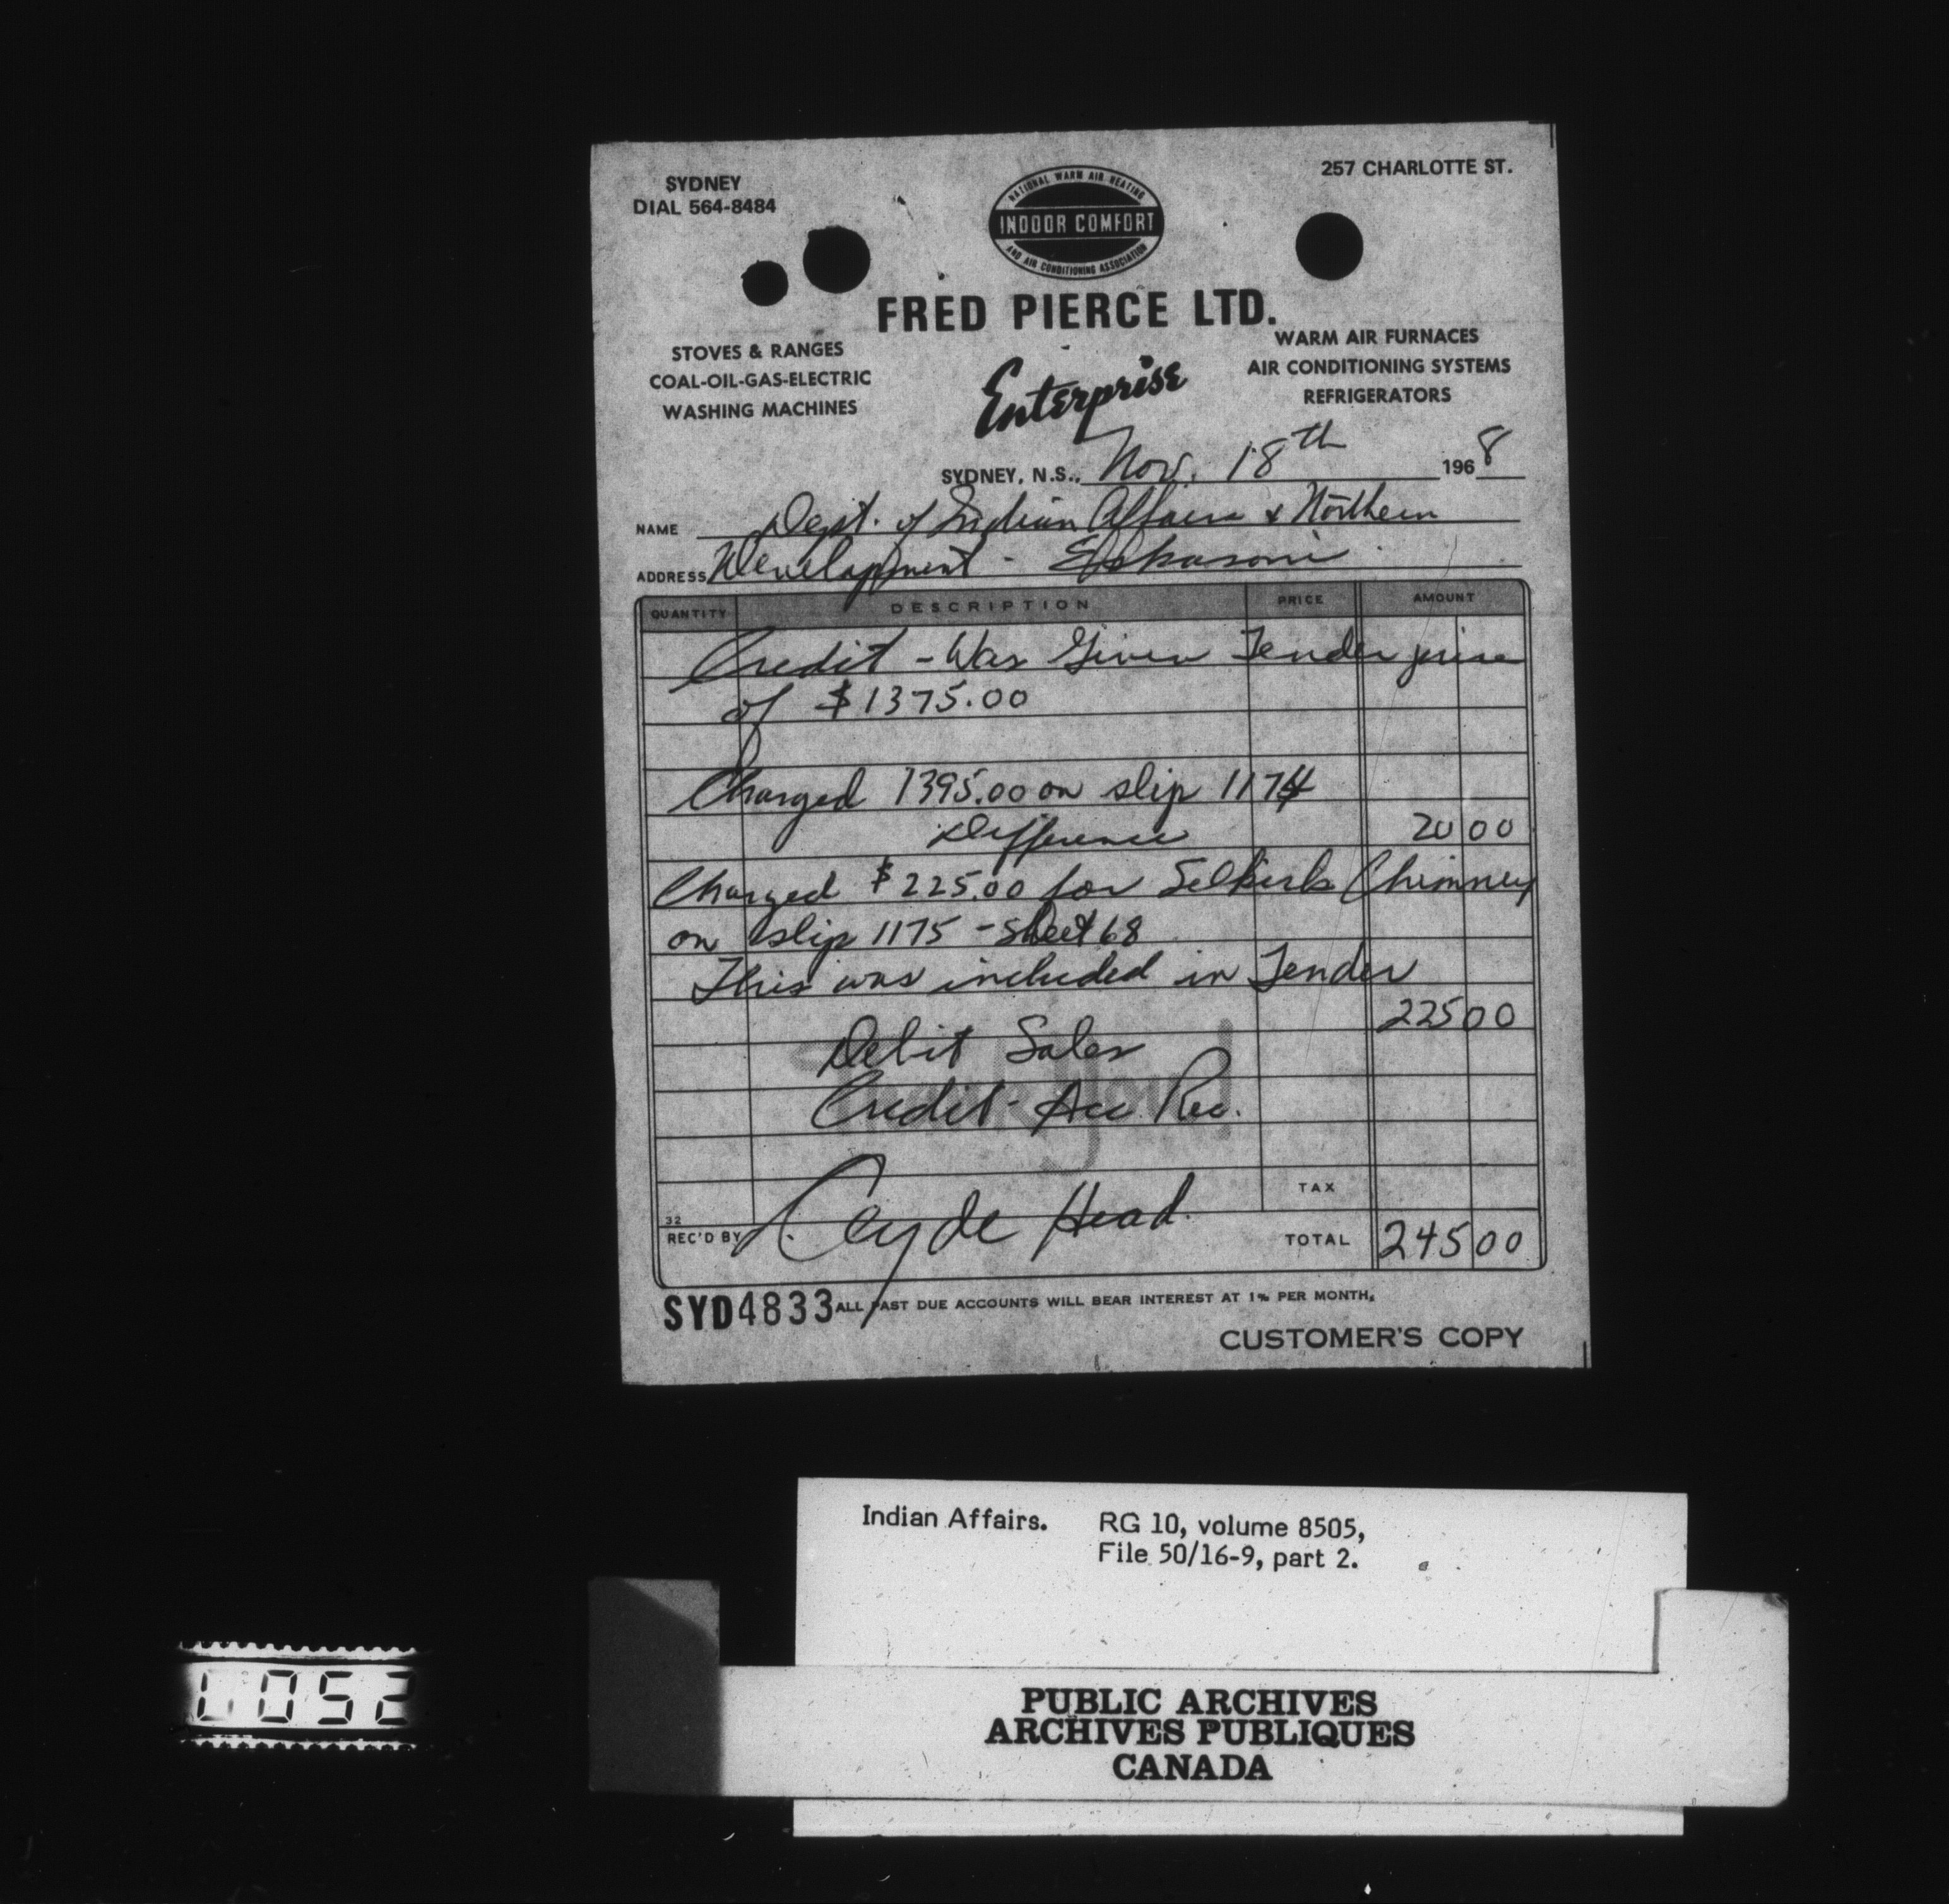 SYDNEY
DIAL 564-8484
257 CHARLOTTE ST.
NATIONAL WARM AIR HEATING
INDOOR COMFORT
AND AIR CONDITIONING ASSOCIATION
FRED PIERCE LTD.
STOVES & RANGES
COAL-OIL-GAS-ELECTRIC
WASHING MACHINES
Enterprise
WARM AIR FURNACES
AIR CONDITIONING SYSTEMS
REFRIGERATORS
SYDNEY, N.S., Nov. 18th 1968
NAME Dept. of Indian Affairs & Northern
ADDRESS Development - Eskasoni
QUANTITY DESCRIPTION PRICE AMOUNT
Credit - Was Given Tender price
of $1375.00
Charged 1395.00 on slip 1174
Difference 20 00
Charged $225.00 for Selkirk Chimney
on slip 1175 - sheet 68
This was included in Tender
225 00
Debit Sales
Credit - Acc Rec.
TAX
32
REC'D BY Clyde Head. TOTAL 245 00
SYD4833 ALL PAST DUE ACCOUNTS WILL BEAR INTEREST AT 1% PER MONTH.
CUSTOMER'S COPY
Indian Affairs. RG 10, volume 8505,
File 50/16-9, part 2.
PUBLIC ARCHIVES
ARCHIVES PUBLIQUES
CANADA